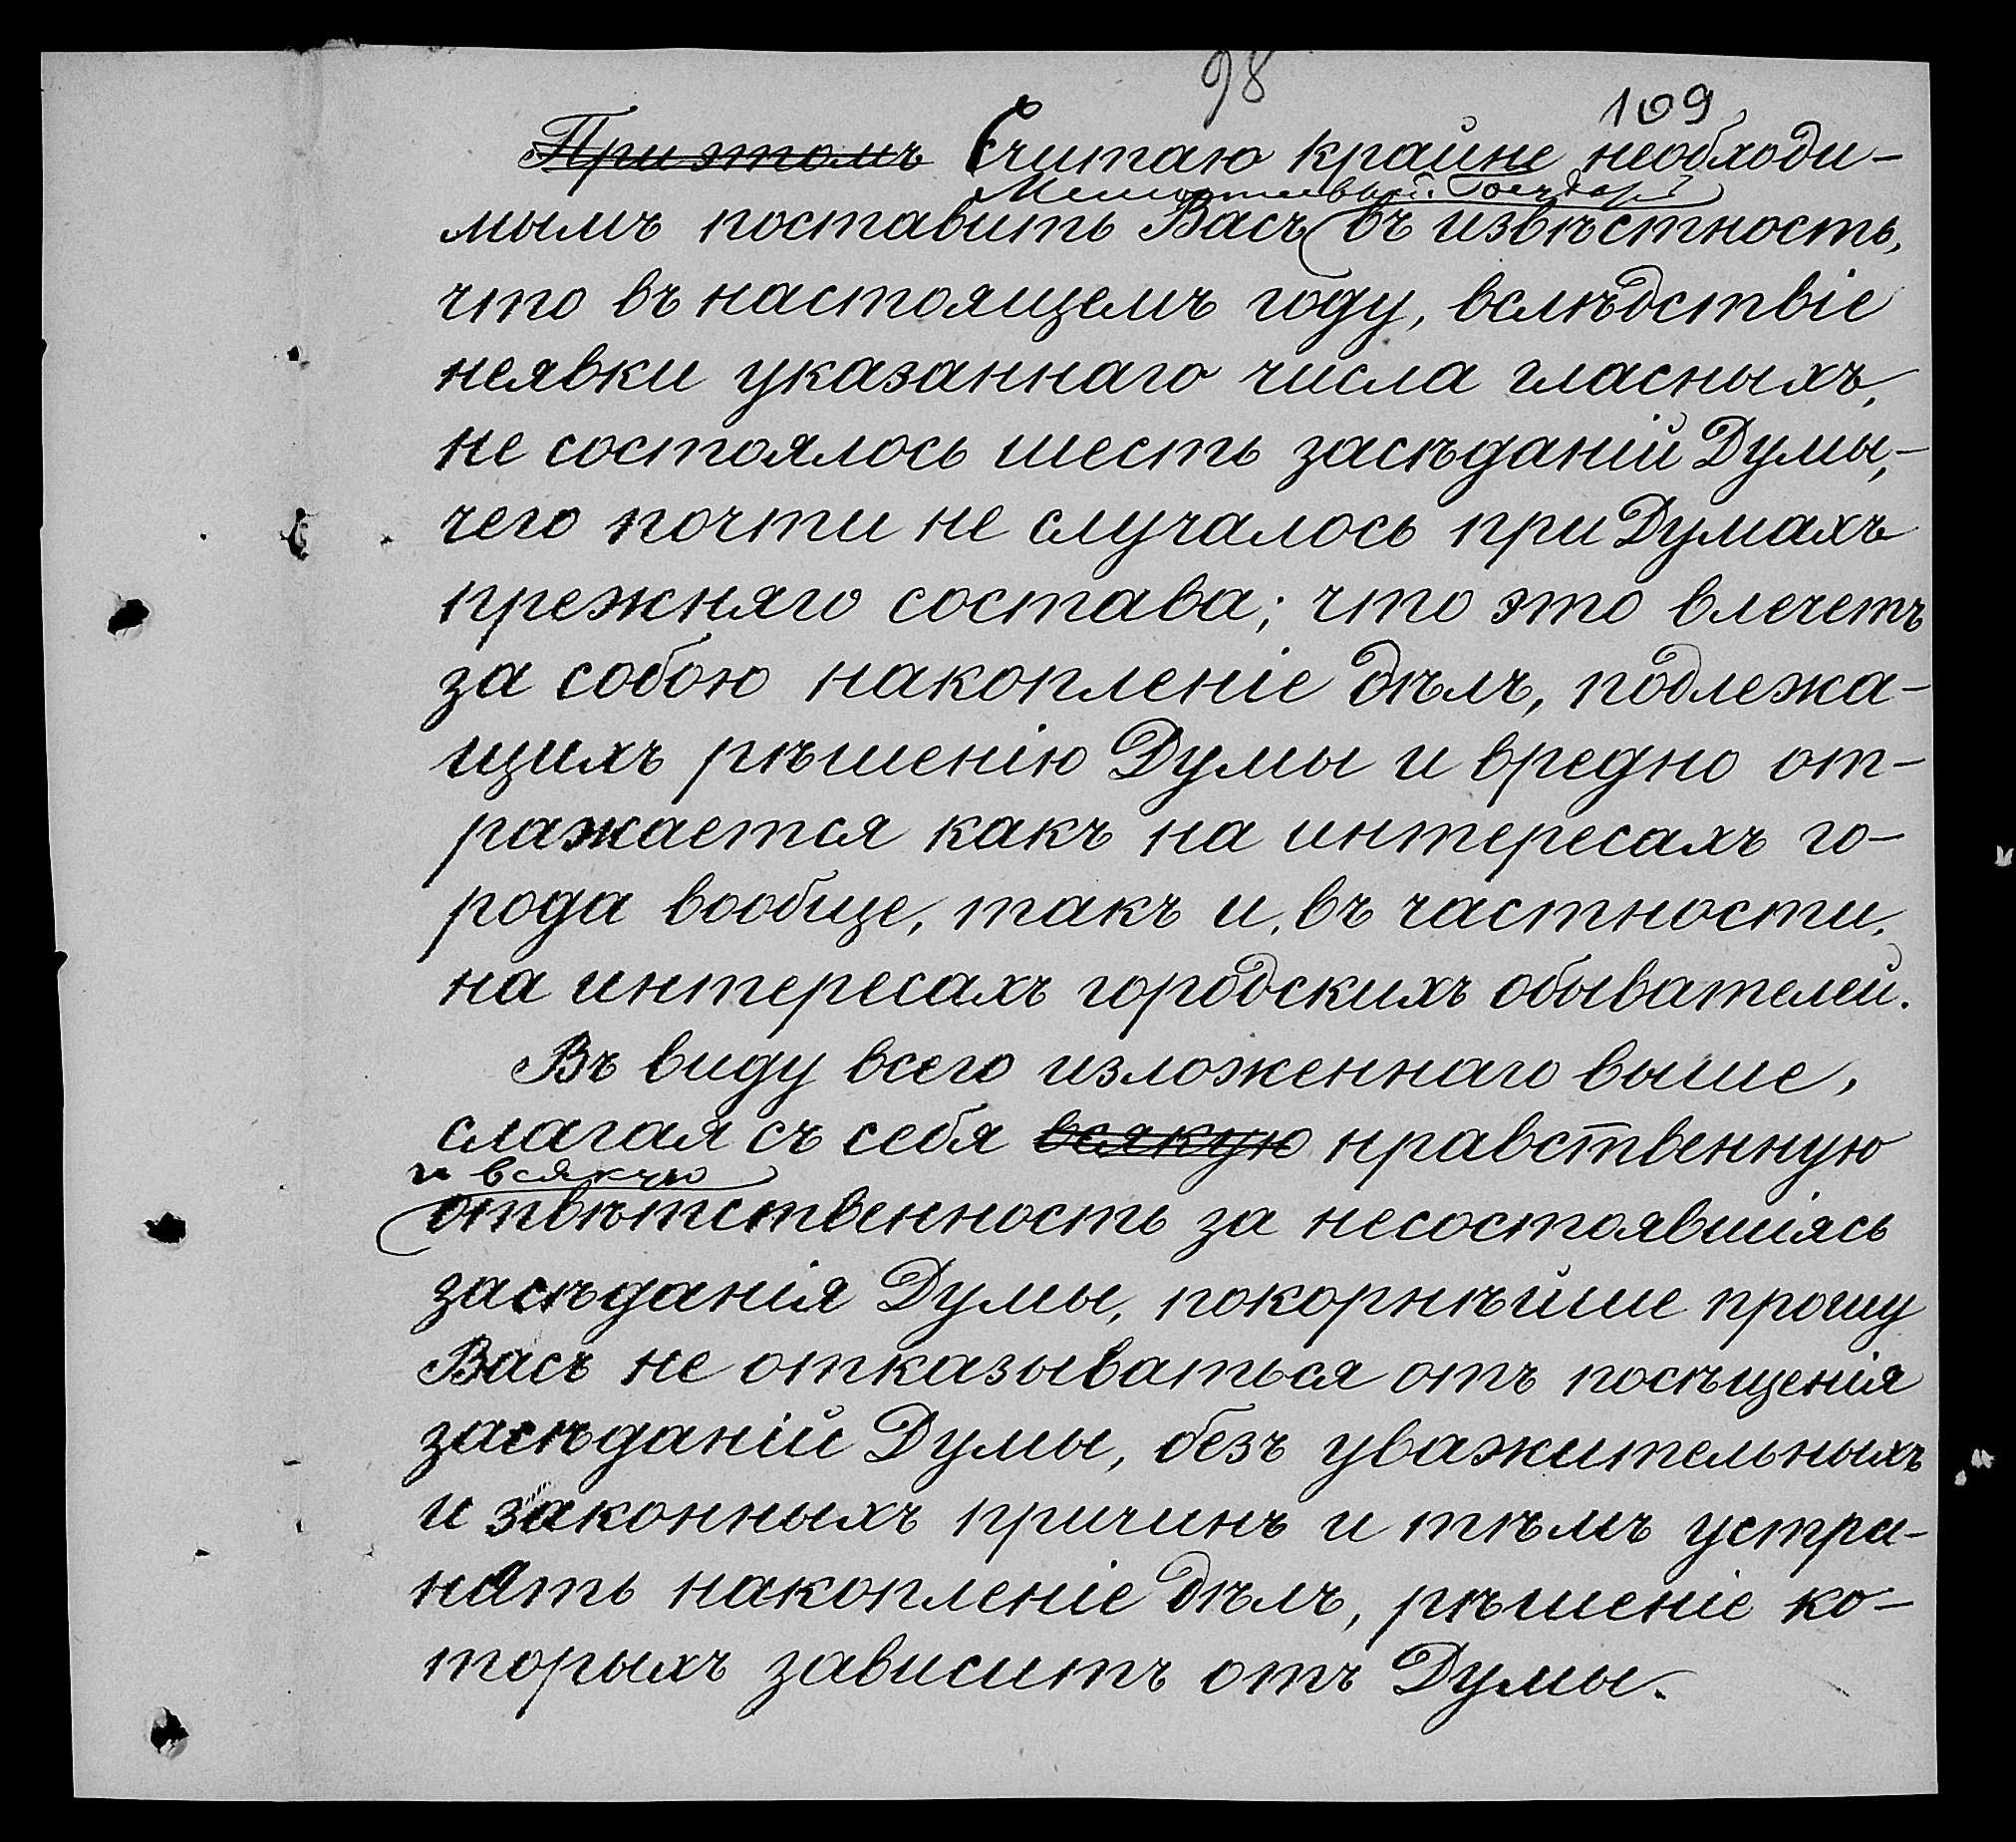 98
109
При этомъ Считаю крайне необходи-
Милостивый Государь
мымъ поставить Васъ въ извѣстность,
что въ настоящемъ году, вслѣдствіе
неявки указаннаго числа гласныхъ,
не состоялось шесть засѣданій Думы,-
чего почти не случалось при Думахъ
прежняго состава; что это влечетъ
за собою накопленіе дѣлъ, подлежа-
щихъ рѣшенію Думы и вредно от-
ражается какъ на интересахъ го-
рода вообще, такъ и, въ частности,
на интересахъ городскихъ обывателей.
Въ виду всего изложеннаго выше,
слагая съ себя всякую нравственную
и всякую
отвѣтственность за несостоявшіясь
засѣданія Думы, покорнѣйше прошу
Васъ не отказываться отъ посѣщенія
засѣданій Думы, безъ уважительныхъ
и законныхъ причинъ и тѣмъ устра-
нять накопленіе дѣлъ, рѣшеніе ко-
торыхъ зависитъ отъ Думы.